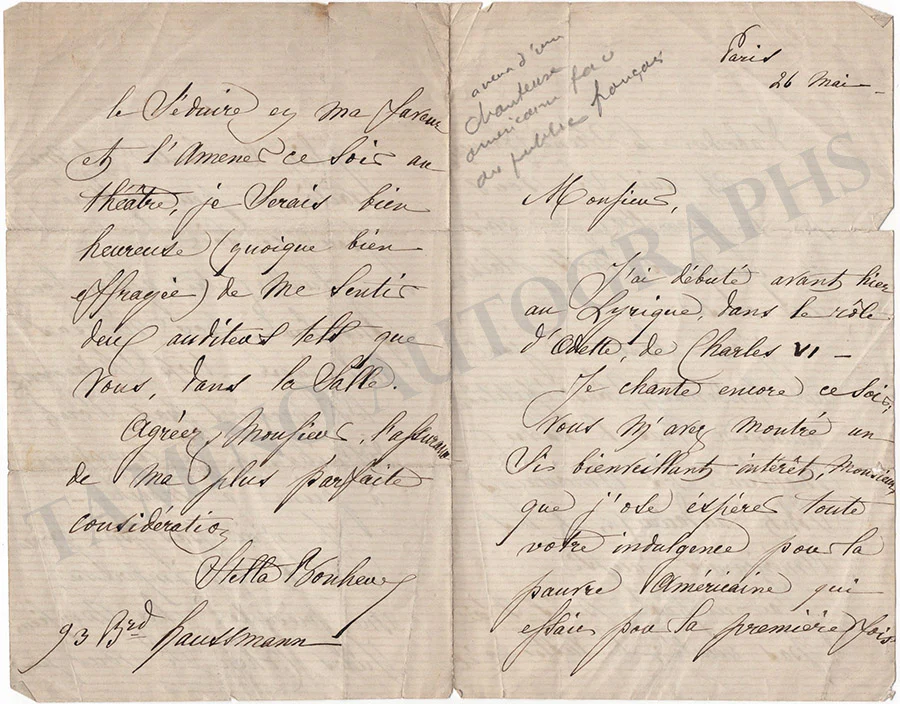 Paris
26 Mai
d'une
chanteuse
américaine
au public français
Monsieur,
J'ai débuté avant hier
au Lyrique, dans le rôle
d'Odette, de Charles VI –
Je chante encore ce soir,
Vous m'avez montré un
Si bienveillant intérêt, Monsieur,
que j'ose éspérer toute
votre indulgence pour la
pauvre Américaine qui
essaie pour la première fois
le Séduire en ma faveur
et l'Amener ce Soir au
théâtre, je Serais bien
heureuse (quoique bien
effrayée) de me Sentir
deux auditeurs tels que
Vous, dans la Salle.
Agréez, Monsieur, l'assurance
de ma plus parfaite
considération
Stella Bonheur
93 Brd Haussmann
TAMINO AUTOGRAPHS